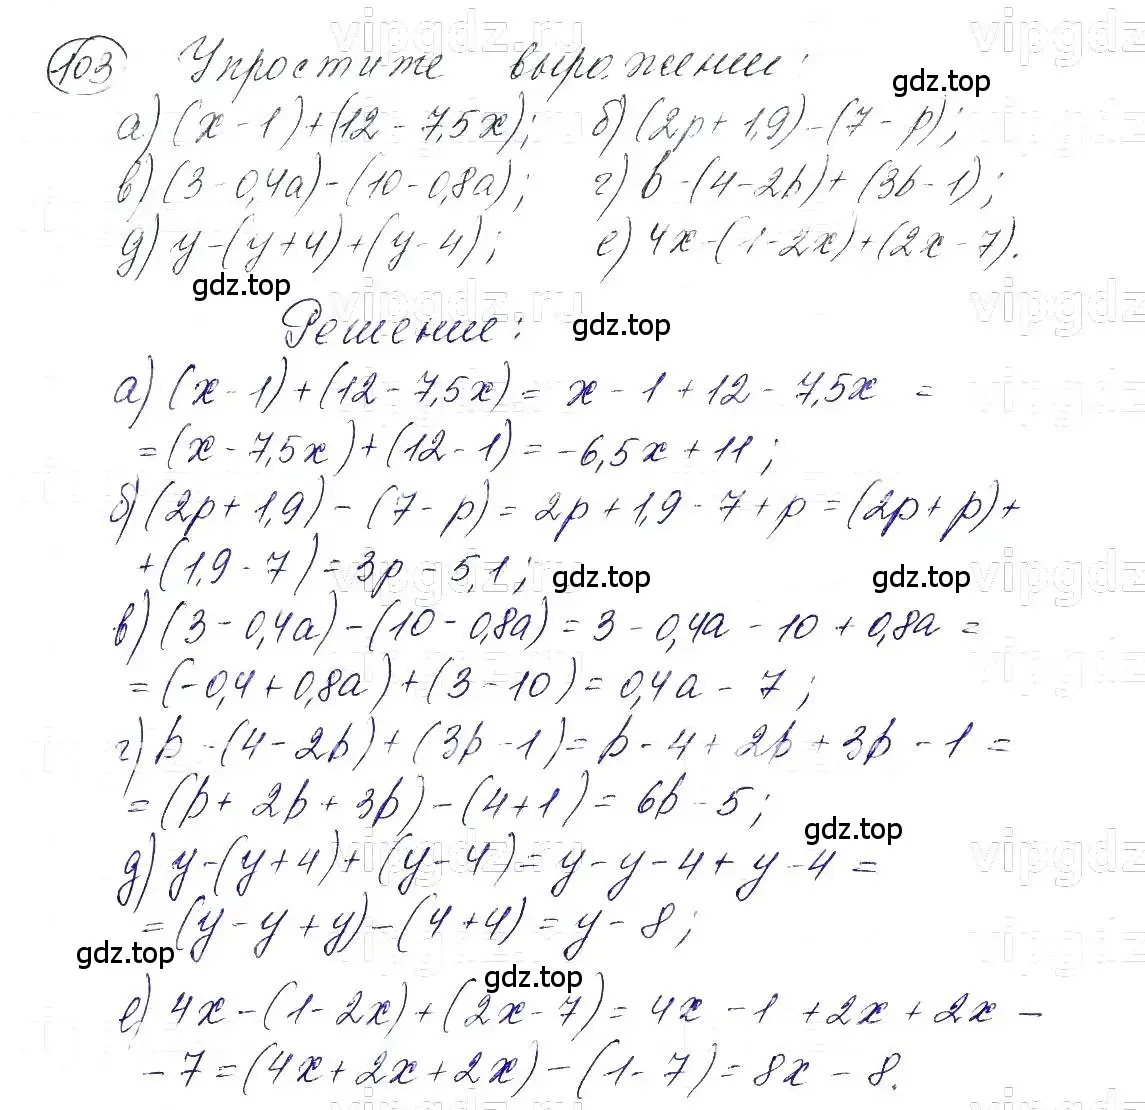 103 Упростите выражение:
а) (x - 1) + (12 - 7,5x); б) (2p + 1,9) - (7 - p);
в) (3 - 0,4a) - (10 - 0,8a); г) b - (4 - 2b) + (3b - 1);
д) y - (y + 4) + (y - 4); е) 4x - (1 - 2x) + (2x - 7).
Решение:
а) (x - 1) + (12 - 7,5x) = x - 1 + 12 - 7,5x =
= (x - 7,5x) + (12 - 1) = -6,5x + 11;
б) (2p + 1,9) - (7 - p) = 2p + 1,9 - 7 + p = (2p + p) +
+ (1,9 - 7) = 3p - 5,1;
в) (3 - 0,4a) - (10 - 0,8a) = 3 - 0,4a - 10 + 0,8a =
= (-0,4 + 0,8a) + (3 - 10) = 0,4a - 7;
г) b - (4 - 2b) + (3b - 1) = b - 4 + 2b + 3b - 1 =
= (b + 2b + 3b) - (4 + 1) = 6b - 5;
д) y - (y + 4) + (y - 4) = y - y - 4 + y - 4 =
= (y - y + y) - (4 + 4) = y - 8;
е) 4x - (1 - 2x) + (2x - 7) = 4x - 1 + 2x + 2x -
- 7 = (4x + 2x + 2x) - (1 - 7) = 8x - 8.
gdz.top
gdz.top
gdz.top
gdz.top
gdz.top
gdz.top
gdz.top
gdz.top
vipgdz.ru
vipgdz
vipgdz.ru
vipgdz